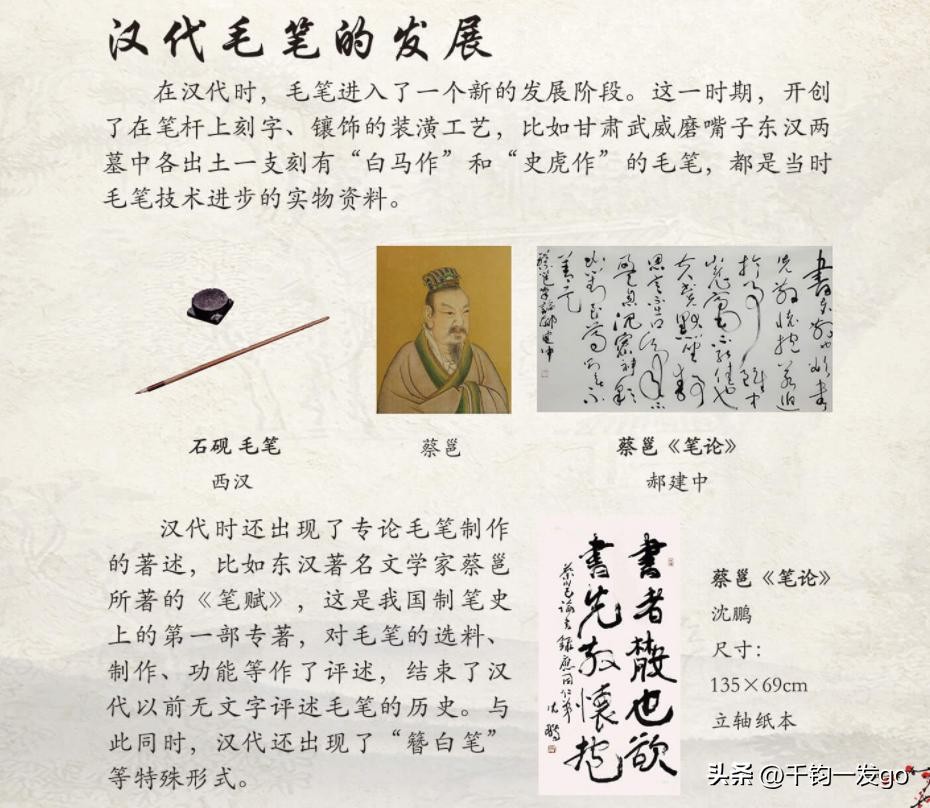 汉代毛笔的发展
在汉代时，毛笔进入了一个新的发展阶段。这一时期，开创
了在笔杆上刻字、镶饰的装潢工艺，比如甘肃武威磨嘴子东汉两
墓中各出土一支刻有“白马作”和“史虎作”的毛笔，都是当时
毛笔技术进步的实物资料。
石砚 毛笔
西汉
蔡邕
蔡邕《笔论》
郝建中
汉代时还出现了专论毛笔制作
的著述，比如东汉著名文学家蔡邕
所著的《笔赋》，这是我国制笔史
上的第一部专著，对毛笔的选料、
制作、功能等作了评述，结束了汉
代以前无文字评述毛笔的历史。与
此同时，汉代还出现了“簪白笔”
等特殊形式。
書者散也欲
書先散懷抱
蔡邕《笔论》
沈鹏
尺寸：
135×69cm
立轴纸本
头条 @千钧一发go